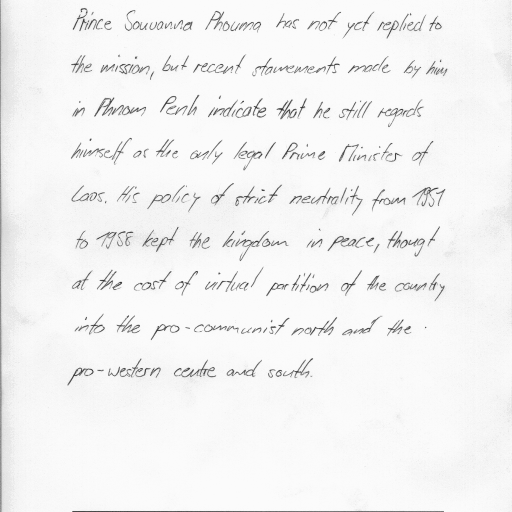 Prince Souvanna Phouma has not yet replied to
the mission, but recent stawements made by him
in Phnom Penh indicate that he still regards
himself as the only legal Prime Minister of
Laos. His policy of strict neutrality from 1951
to 1958 kept the kingdom in peace, thougt
at the cost of virtual partition of the country
into the pro-communist north and the
pro-western centre and south.